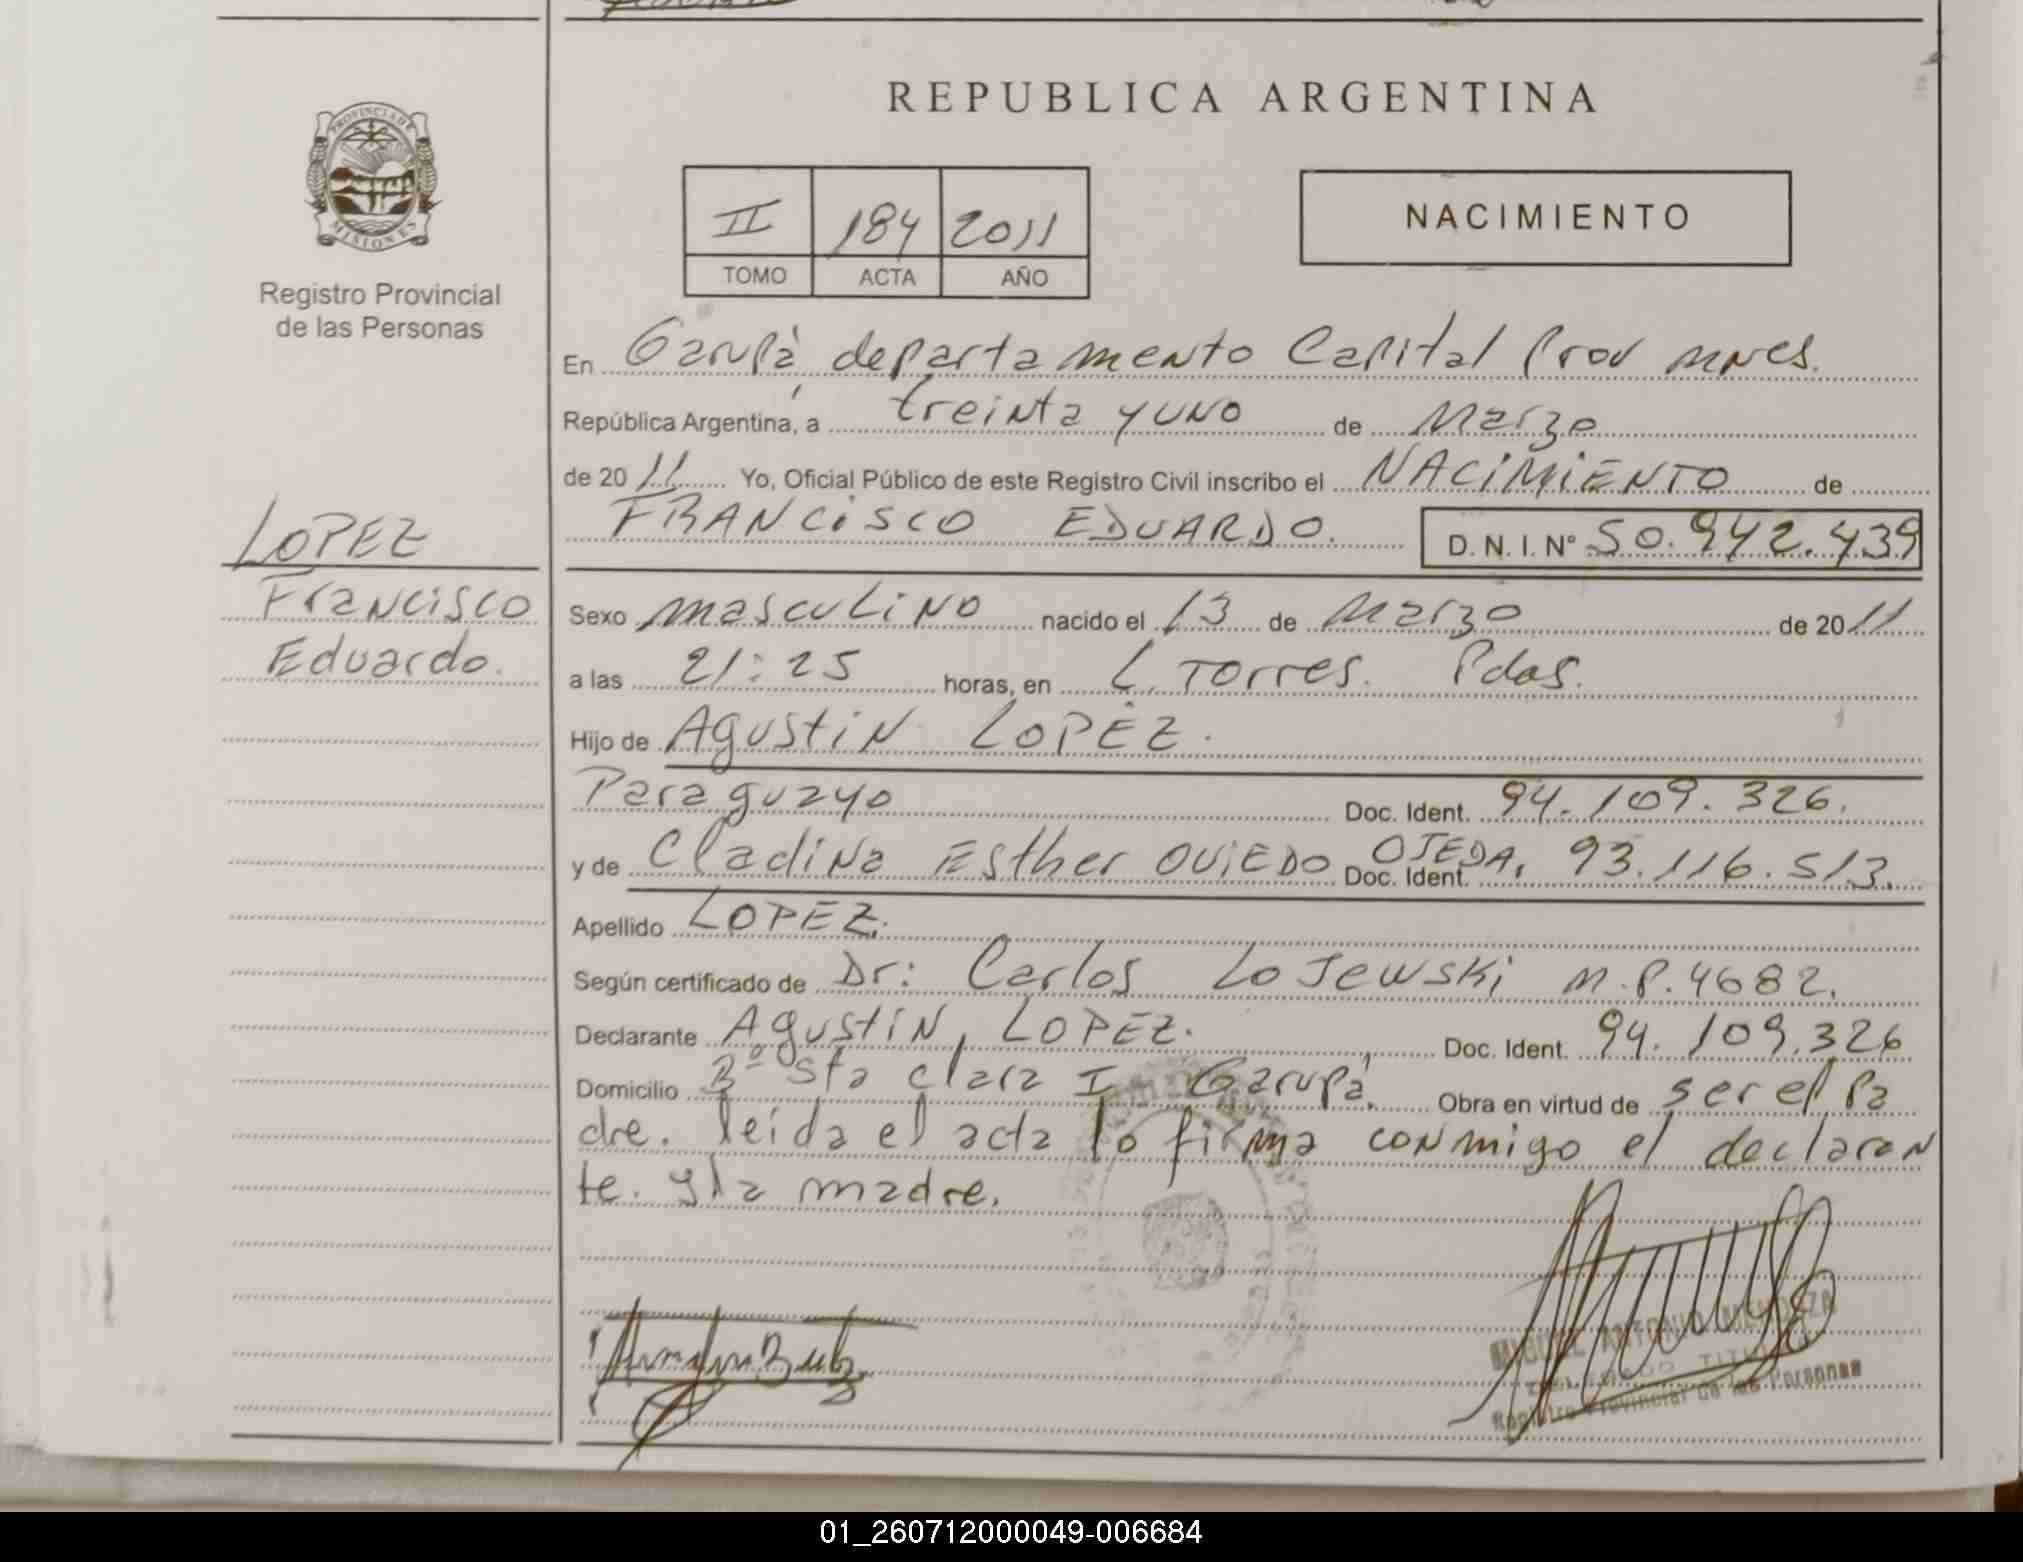 REPUBLICA ARGENTINA
PROVINCIA DE
MISIONES
Registro Provincial
de las Personas
II 184 2011
TOMO ACTA AÑO
NACIMIENTO
En Garupà departamento Capital Prov mnes.
República Argentina, a treinta y uno de Marzo
de 2011 Yo, Oficial Público de este Registro Civil inscribo el NACIMIENTO de
FRANCISCO EDUARDO. D. N. I. Nº 50.942.439
LOPEZ
Francisco
Eduardo.
Sexo masculino nacido el 13 de Marzo de 2011
a las 21:25 horas, en L. Torres. Pdas.
Hijo de Agustin LOPEZ.
Paraguayo Doc. Ident. 94.109.326.
y de Cladina Esther OVIEDO OJEDA. Doc. Ident. 93.116.513.
Apellido LOPEZ.
Según certificado de Dr: Carlos Lojewski M.P.4682.
Declarante Agustin, LOPEZ. Doc. Ident. 94.109.326
Domicilio Bº Sta clara I Garupá. Obra en virtud de ser el Pa
dre. leida el acta lo firma conmigo el declaran
te. y la madre.
MIGUEL ANTONIO MENDOZA
Registro Provincial de las Personas
01_260712000049-006684